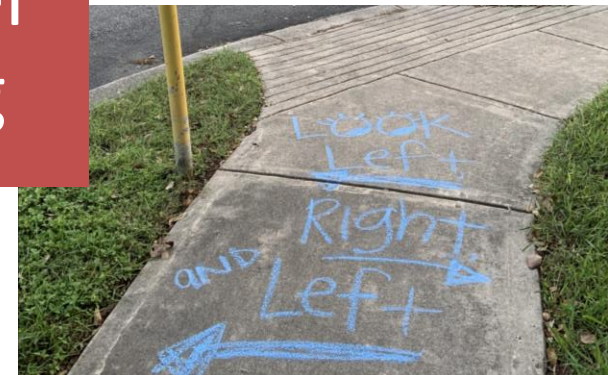 LOOK
Left
Right
AND
Left